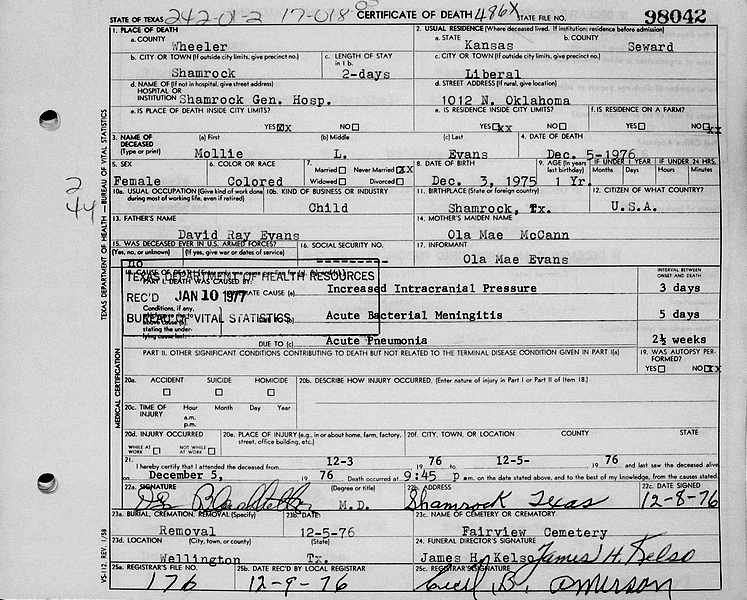 STATE OF TEXAS 242-01-2 17-018 CERTIFICATE OF DEATH 486X STATE FILE NO. 98042
1. PLACE OF DEATH 2. USUAL RESIDENCE (Where deceased lived. If institution: residence before admission)
a. COUNTY a. STATE b. COUNTY
Wheeler Kansas Seward
b. CITY OR TOWN (If outside city limits, give precinct no.) c. LENGTH OF STAY in 1 b. c. CITY OR TOWN (If outside city limits, give precinct no.)
Shamrock 2-days Liberal
d. NAME OF (If not in hospital, give street address) HOSPITAL OR INSTITUTION Shamrock Gen. Hosp. d. STREET ADDRESS (If rural, give location)
1012 N. Oklahoma
e. IS PLACE OF DEATH INSIDE CITY LIMITS? e. IS RESIDENCE INSIDE CITY LIMITS? f. IS RESIDENCE ON A FARM?
YES XX NO YES XX NO YES NO XX
3. NAME OF DECEASED (Type or print) (a) First (b) Middle (c) Last 4. DATE OF DEATH
Mollie L. Evans Dec. 5-1976
5. SEX 6. COLOR OR RACE 7. Married Never Married XX Widowed Divorced 8. DATE OF BIRTH 9. AGE (In years last birthday) IF UNDER 1 YEAR Months Days IF UNDER 24 HRS. Hours Minutes
Female Colored Dec. 3, 1975 1 Yr.
10a. USUAL OCCUPATION (Give kind of work done during most of working life, even if retired) 10b. KIND OF BUSINESS OR INDUSTRY 11. BIRTHPLACE (State or foreign country) 12. CITIZEN OF WHAT COUNTRY?
Child Shamrock, Tx. U.S.A.
13. FATHER'S NAME 14. MOTHER'S MAIDEN NAME
David Ray Evans Ola Mae McCann
15. WAS DECEASED EVER IN U.S. ARMED FORCES? 16. SOCIAL SECURITY NO. 17. INFORMANT
(Yes, no, or unknown) (If yes, give war or dates of service)
no --------- Ola Mae Evans
18. CAUSE OF DEATH
PART I. DEATH WAS CAUSED BY: INTERVAL BETWEEN ONSET AND DEATH
TEXAS DEPARTMENT OF HEALTH RESOURCES
REC'D JAN 10 1977
BUREAU OF VITAL STATISTICS
CAUSE (a) Increased Intracranial Pressure 3 days
Conditions, if any,
above cause (a), stating the underlying cause last.
(b) Acute Bacterial Meningitis 5 days
DUE TO (c) Acute Pneumonia 2½ weeks
PART II. OTHER SIGNIFICANT CONDITIONS CONTRIBUTING TO DEATH BUT NOT RELATED TO THE TERMINAL DISEASE CONDITION GIVEN IN PART I(a) 19. WAS AUTOPSY PERFORMED?
YES NO XX
20a. ACCIDENT SUICIDE HOMICIDE 20b. DESCRIBE HOW INJURY OCCURRED. (Enter nature of injury in Part I or Part II of Item 18.)
20c. TIME OF INJURY Hour a.m. p.m. Month Day Year
20d. INJURY OCCURRED WHILE AT WORK NOT WHILE AT WORK 20e. PLACE OF INJURY (e.g., in or about home, farm, factory, street, office building, etc.) 20f. CITY, TOWN, OR LOCATION COUNTY STATE
21. I hereby certify that I attended the deceased from 12-3 1976 to 12-5- 1976 and last saw the deceased alive
on December 5, 1976 Death occurred at 9:45 p m. on the date stated above, and to the best of my knowledge, from the causes stated.
22a. SIGNATURE (Degree or title) 22b. ADDRESS 22c. DATE SIGNED
M.D. Shamrock Texas 12-8-76
23a. BURIAL, CREMATION, REMOVAL (Specify) 23b. DATE 23c. NAME OF CEMETERY OR CREMATORY
Removal 12-5-76 Fairview Cemetery
23d. LOCATION (City, town, or county) (State) 24. FUNERAL DIRECTOR'S SIGNATURE
Wellington Tx. James H. Kelso James H. Kelso
25a. REGISTRAR'S FILE NO. 25b. DATE REC'D BY LOCAL REGISTRAR 25c. REGISTRAR'S SIGNATURE
176 12-9-76 Cecil B.
TEXAS DEPARTMENT OF HEALTH — BUREAU OF VITAL STATISTICS
MEDICAL CERTIFICATION
VS-112, REV. 1/58
2
44